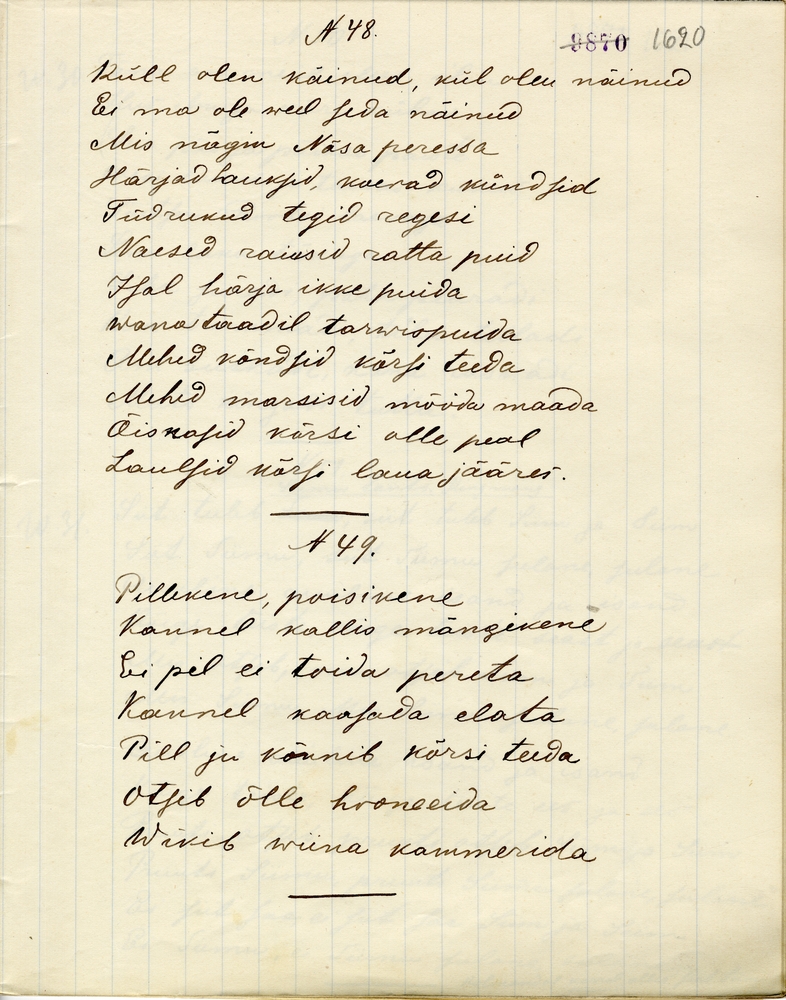 N 48.
9870 1620
Küll olen käinud, kül olen näinud
Ei ma ole weel seda näinud
Mis nägin Nõsa peressa
Härjad lauksid, koerad kündsid
Tüdrukud tegid regesi
Naesed raiusid ratta puid
Isal härja ikke puida
wana taadil tarwispuida
Mehed kõndsid kõrsi teeda
Mehed marsisid mööda maada
Õiskasid kõrsi olle peal
Laulsid kõrsi laua jääres.
N 49.
Pillikene, poisikene
Kannel kallis mängikene
Ei pil ei toida pereta
Kannel kaasada elata
Pill ju kõnnib kõrsi teeda
Otsib õlle hooneeida
Wikib wiina kammerida